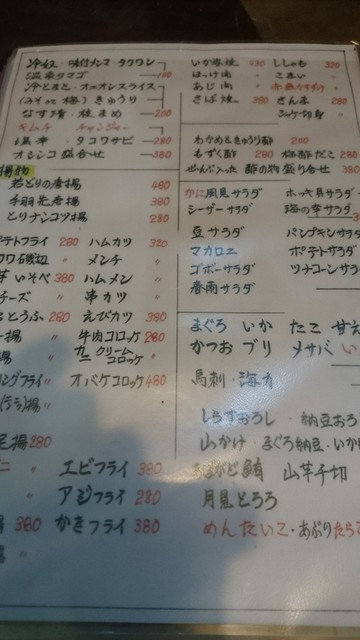 冷奴・味付メンマ・タクワン
温泉タマゴ 100
冷とまと・オニオンスライス
(みそor梅)きゅうり
なす漬・枝まめ 200
キムチ チャンジャー
塩辛・タコワサビ 280
オシンコ盛合せ 380
揚物
若とりの唐揚 480
手羽先唐揚 380
とりナンコツ揚 280
ポテトフライ 280 ハムカツ 320
磯辺 〃 メンチ 〃
いそべ 380 ハムメン 〃
チーズ 〃 串カツ 〃
とうふ 280 えびカツ 380
揚 〃 牛肉コロッケ 280
揚 〃 カニクリームコロッケ 〃
リングフライ 〃 オバケコロッケ 480
揚 280
〃 エビフライ 380
〃 アジフライ 280
380 かきフライ 380
〃
いか姿焼 480 ししゃも 320
ほっけ肉 〃 こまい 〃
あじ肉 〃
さば焼 380 さんま 280
わかめときゅうり酢 200
もずく酢 280 梅酢だこ 280
酢の物盛り合せ 380
かに風見サラダ ホッキ貝サラダ
シーザーサラダ 海の幸サラダ
豆サラダ パンプキンサラダ
マカロニ ポテトサラダ
ゴボーサラダ ツナコーンサラダ
春雨サラダ
まぐろ いか たこ 甘え
かつお ブリ メサバ い
馬刺・海カ
しらすおろし・納豆おろ
山かけ・まぐろ納豆・いか
あぼかど鮪 山芋千切
月見とろろ
めんたいこ・あぶりたらこ